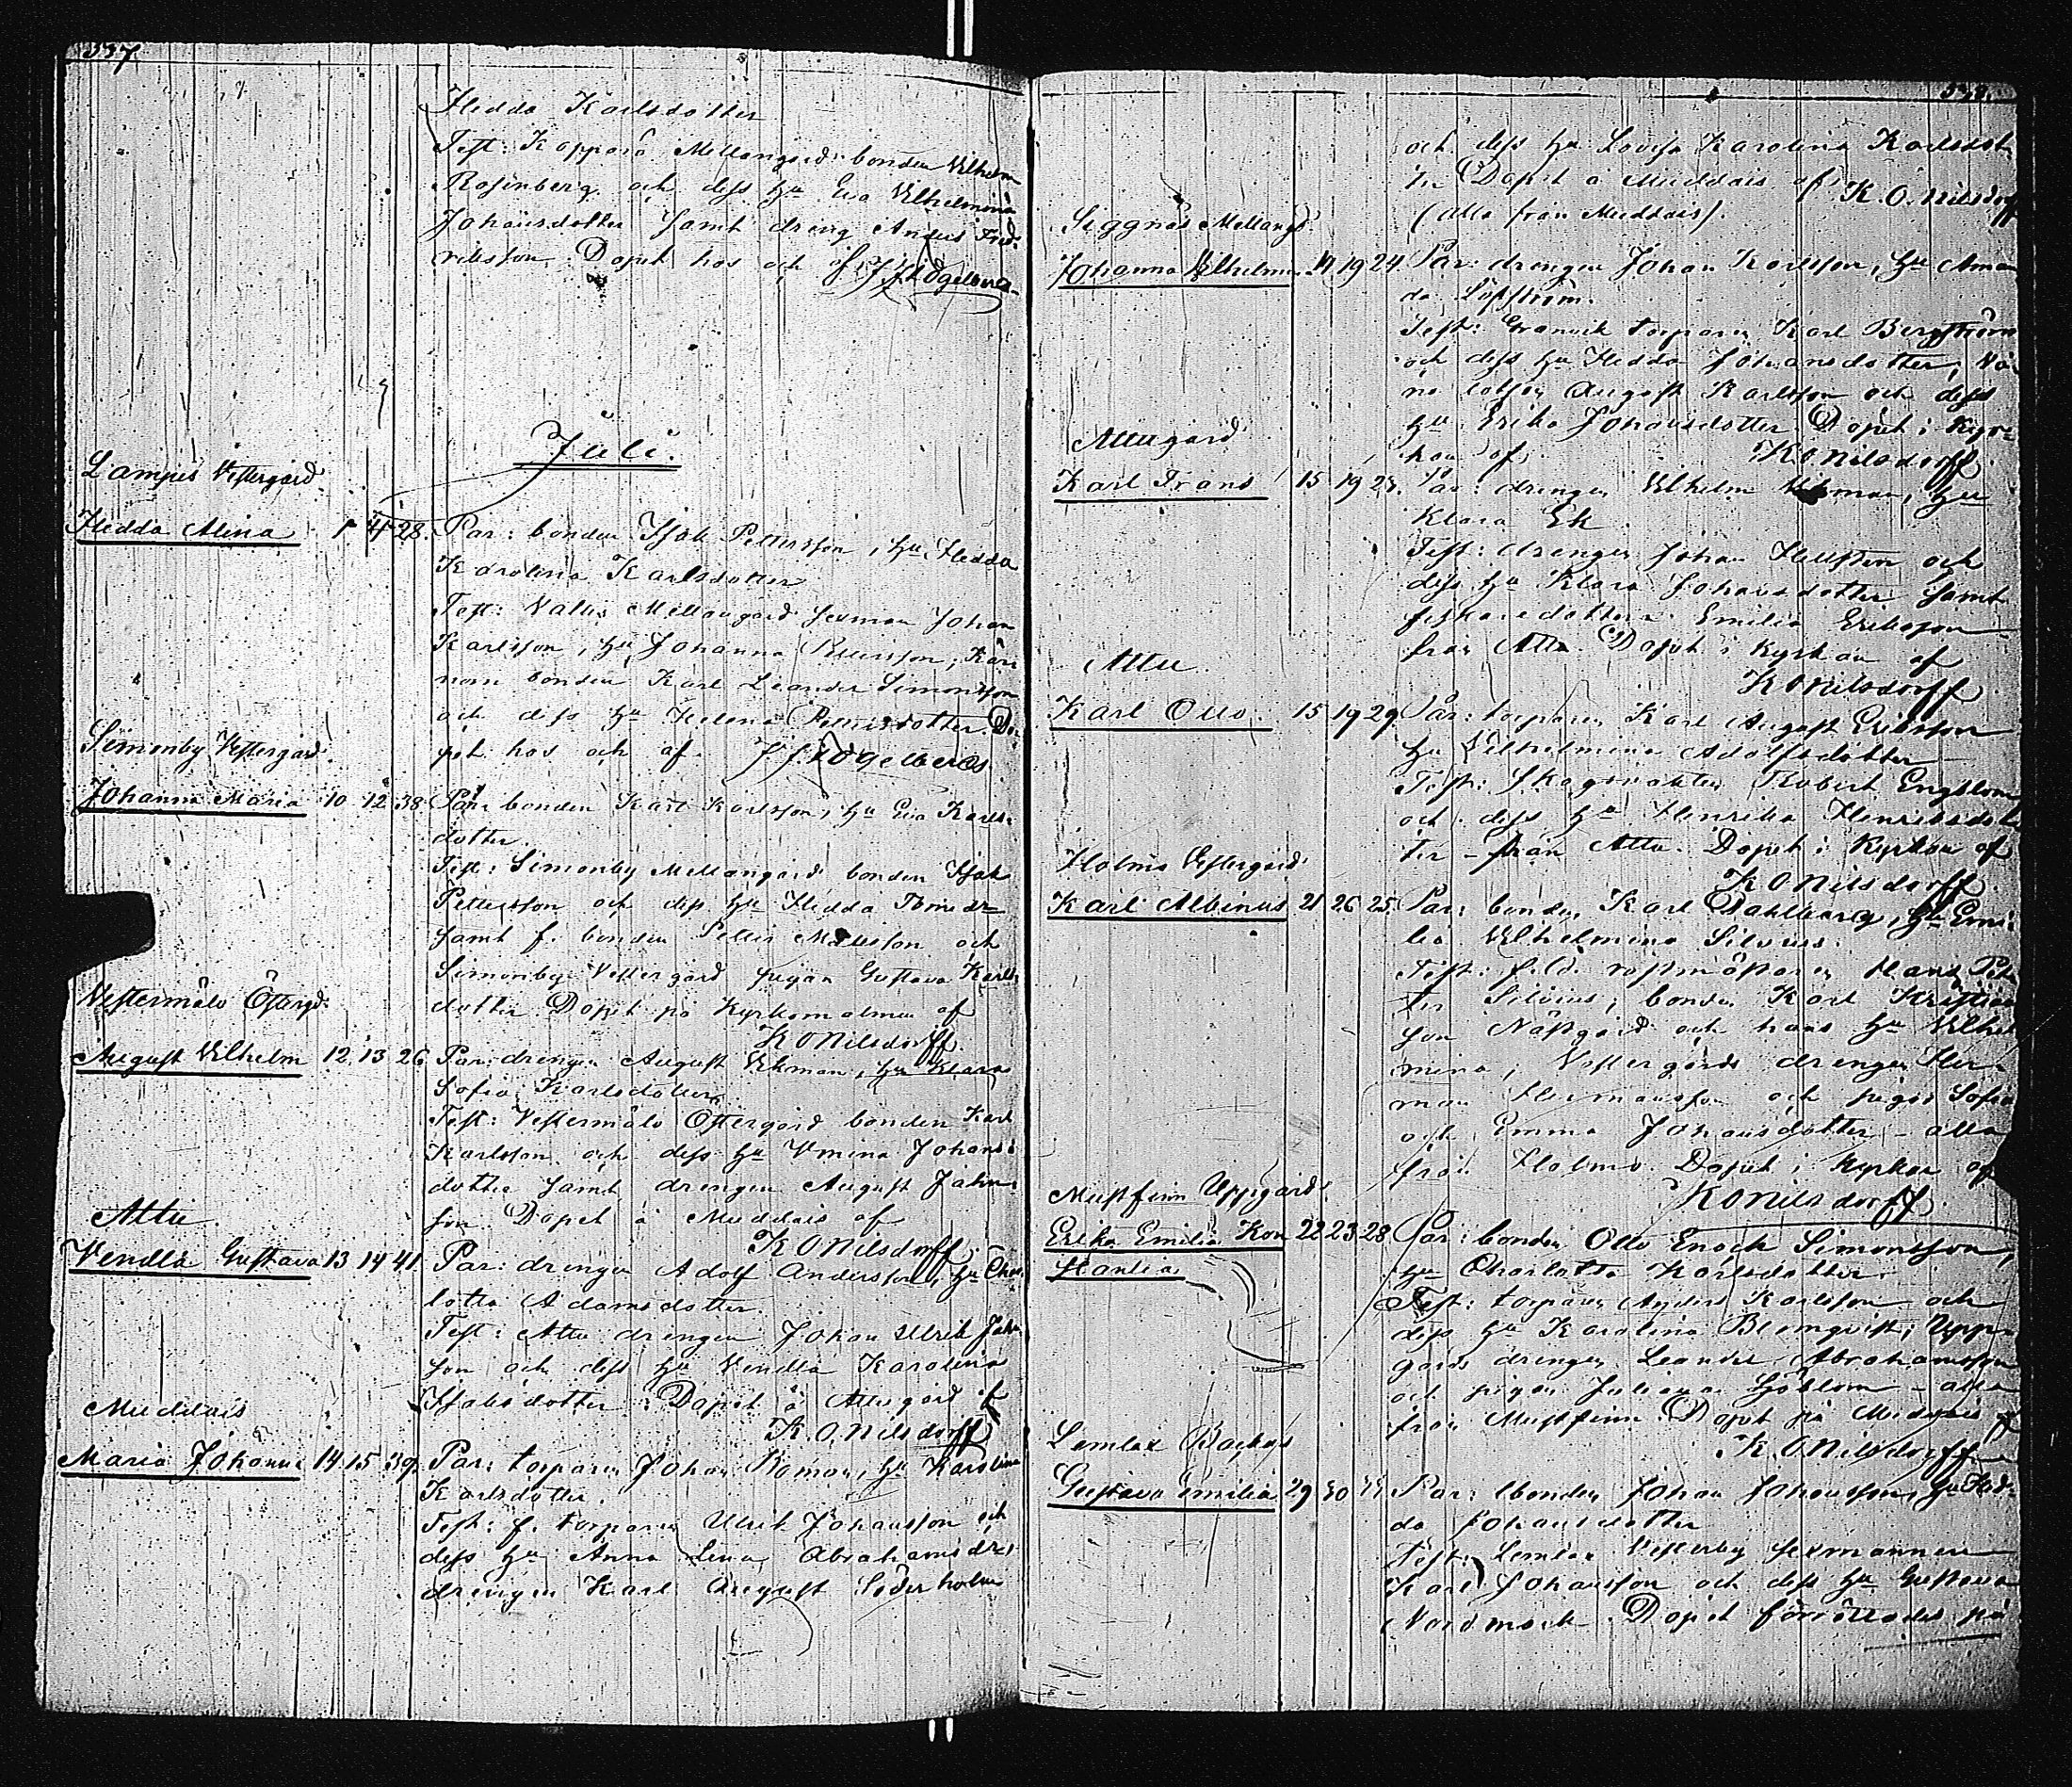 537.
Hedda Karlsdotter
Test: Kopparå Mellangård bonden Vilhelm
Rosenberg och dess hu Eva Vilhelmina
Johansdotter samt dreng Anders Fred-
riksson. Döpet hos och af J J Fogelberg.
Juli.
Lampis Vestergård
Hedda Alina 1 4 28. Par: bonden Isak Pettersson, hu Hedda
Karolina Karlsdotter
Test: Valtis Mellangård sexman Johan
Karlsson, hu Johanna
nom bonden Karl Leander Simonsson
och dess hu Helena Petersdotter. Dö-
pet hos och af J J Fogelberg.
Simonby Vestergård.
Johanna Maria 10 12 38 Par: bonden Karl Karlsson, hu Eva Karls-
dotter.
Test: Simonby Mellangård bonden Isak
Pettersson och dess hu Hedda
samt f. bonden Petter Mattsson och
Simonby Vestergård pigan Gustava Karls-
dotter Döpet på Kyrkomalmen af
K O Nilsdorff
Vestermälö Östergd.
August Vilhelm 12 13 26 Par: drengen August Ekman, hu Klara
Sofia Karlsdotter
Test: Vestermälö Östergård bonden Karl
Karlsson och dess hu Vmina Johans-
dotter samt drengen August Johns-
son Döpet å Muddais af
K O Nilsdorff.
Attu
Vendla Gustava 13 14 41 Par: drengen Adolf Andersson, hu Char-
lotta Adamsdotter
Test: Attu drengen Johan Ulrik Johns-
son och dess hu Vendla Karolina
Isaksdotter. Döpet å Attugård af
K. O. Nilsdorff
Muddais
Maria Johanna 14 15 39. Par: torparen Johan Roman, hu Karolina
Karlsdotter.
Test: f. torparen Ulrik Johansson och
dess hu Anna Lena Abrahamsdr,
drengen Karl August Söderholm
538.
och dess hu Lovisa Karolina Karlsdot-
ter Döpet å Muddais af K. O. Nilsdorff
(alla från Muddais).
Seggnäs Mellangd
Johanna Vilhelmina 14 19 24 Par: drengen Johan Karlsson, hu Aman-
da Löfström.
Test: Granvik torparen Karl Bergström
och dess hu Hedda Johansdotter, Vå-
nö lotsen August Karlsson och dess
hu Erika Johansdotter Döpet i Kyr-
kan af K O Nilsdorff
Attugård
Karl Frans 15 19 23. Par: drengen Vilhelm Ekman, hu
Klara Ek
Test: drengen Johan Hellsten och
dess hu Klara Johansdotter samt
fiskaredottern Emilia Eriksson
från Attu. Döpet i Kyrkan af
K O Nilsdorff
Attu.
Karl Otto 15 19 29 Par: torparen Karl August Eriksson
hu Vilhelmina Adolfsdotter
Test: Skogsvakten Robert Engblom
och dess hu Henrika Henriksdot-
ter – från Attu. Döpet i Kyrkan af
K O Nilsdorff
Holmo Vestergård
Karl Albinus 21 26 25 Par: bonden Karl Dahlberg, hu Emi-
lia Vilhelmina Silvius.
Test: f.d. rustmästaren Hans Pet-
ter Silvius, bonden Karl Kristians-
son Näsgård och hans hu Vilhel-
mina, Vestergårds drengen Her-
man Hermansson och pigor Sofia
och Emma Johansdotter – alla
från Holmo Döpet i kyrkan af
K O Nilsdorff
Mustfinn Uppgård
Erika Emilia Kon- 22 23 28 Par: bonden Otto Enoch Simonsson,
stantia hu Charlotta Karlsdotter.
Test: torparen Anders Karlsson och
dess hu Karolina Blomqvist; Upp-
gårds drengen Leander Abrahamsson
och pigan Juliana Sjöblom – alla
från Mustfinn. Döpet på Muddais af
K. O. Nilsdorff
Lemlax Backas
Gustava Emilia 29 30 Par: bonden Johan Johansson, hu Hed-
da Johansdotter
Test: Lemlax Vesterby sexmannen
Karl Johansson och dess hu Gustava
Nordmark. Döpet förrättades på